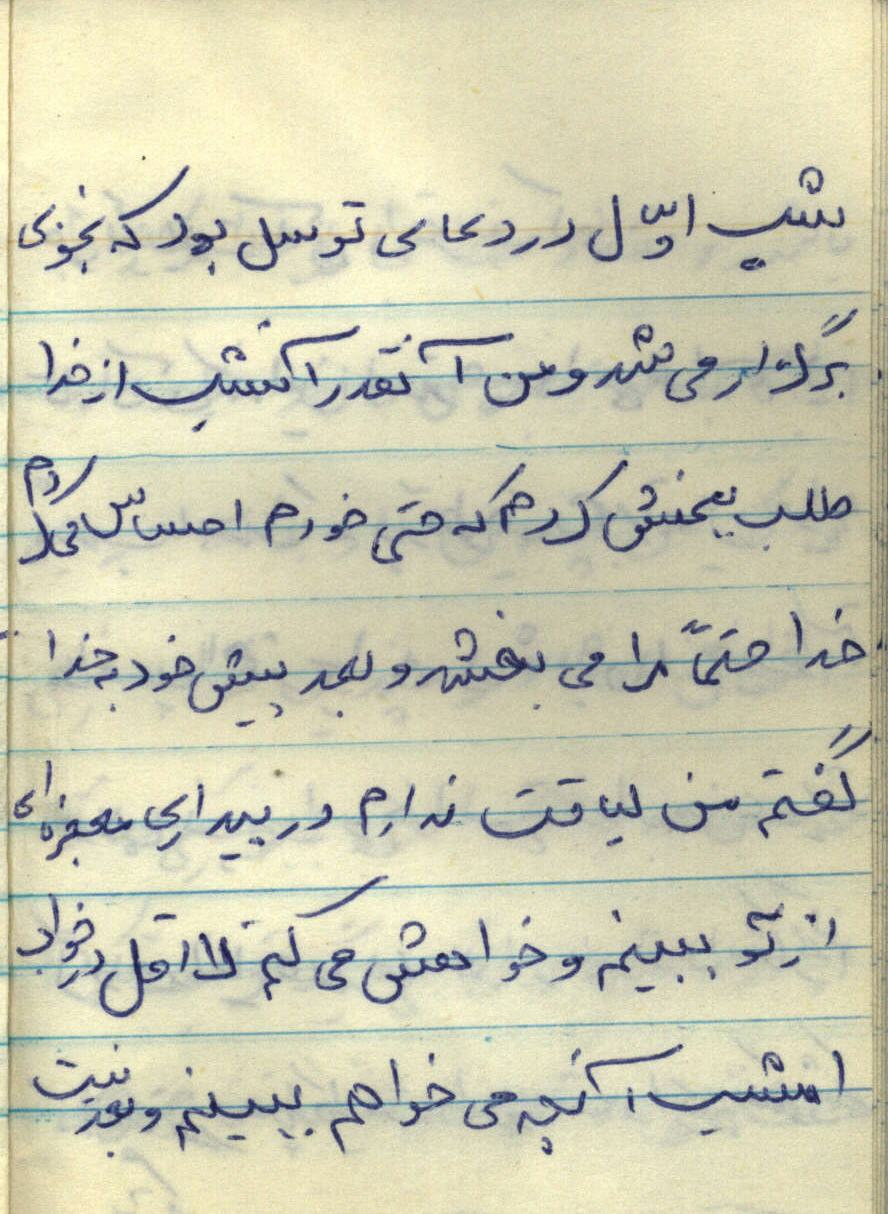 شب اوّل در دعای توسل بود که بخوبی
برگزار می شد و من آنقدر آنشب از خدا
طلب بخشش کردم که حتی خودم احساس می کردم
خدا حتماً مرا می بخشد و بعد پیش خود به خدا
گفتم من لیاقت ندارم در بیداری معجزه ای
از تو ببینم و خواهش می کنم لااقل در خواب
امشب آنچه می خواهم ببینم و بعد نیت